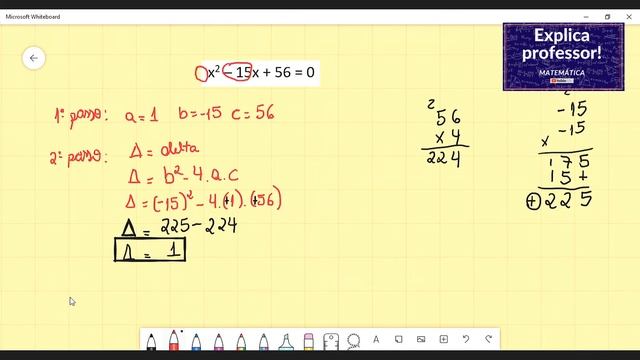 Microsoft Whiteboard
Explica
professor!
MATEMÁTICA
x² – 15x + 56 = 0
1º passo: a = 1 b = -15 c = 56
2º passo: Δ = delta
Δ = b² - 4.a.c
Δ = (-15)² - 4.(+1).(+56)
Δ = 225 - 224
Δ = 1
2
56
x 4
224
2
-15
-15
x
175
15+
+225